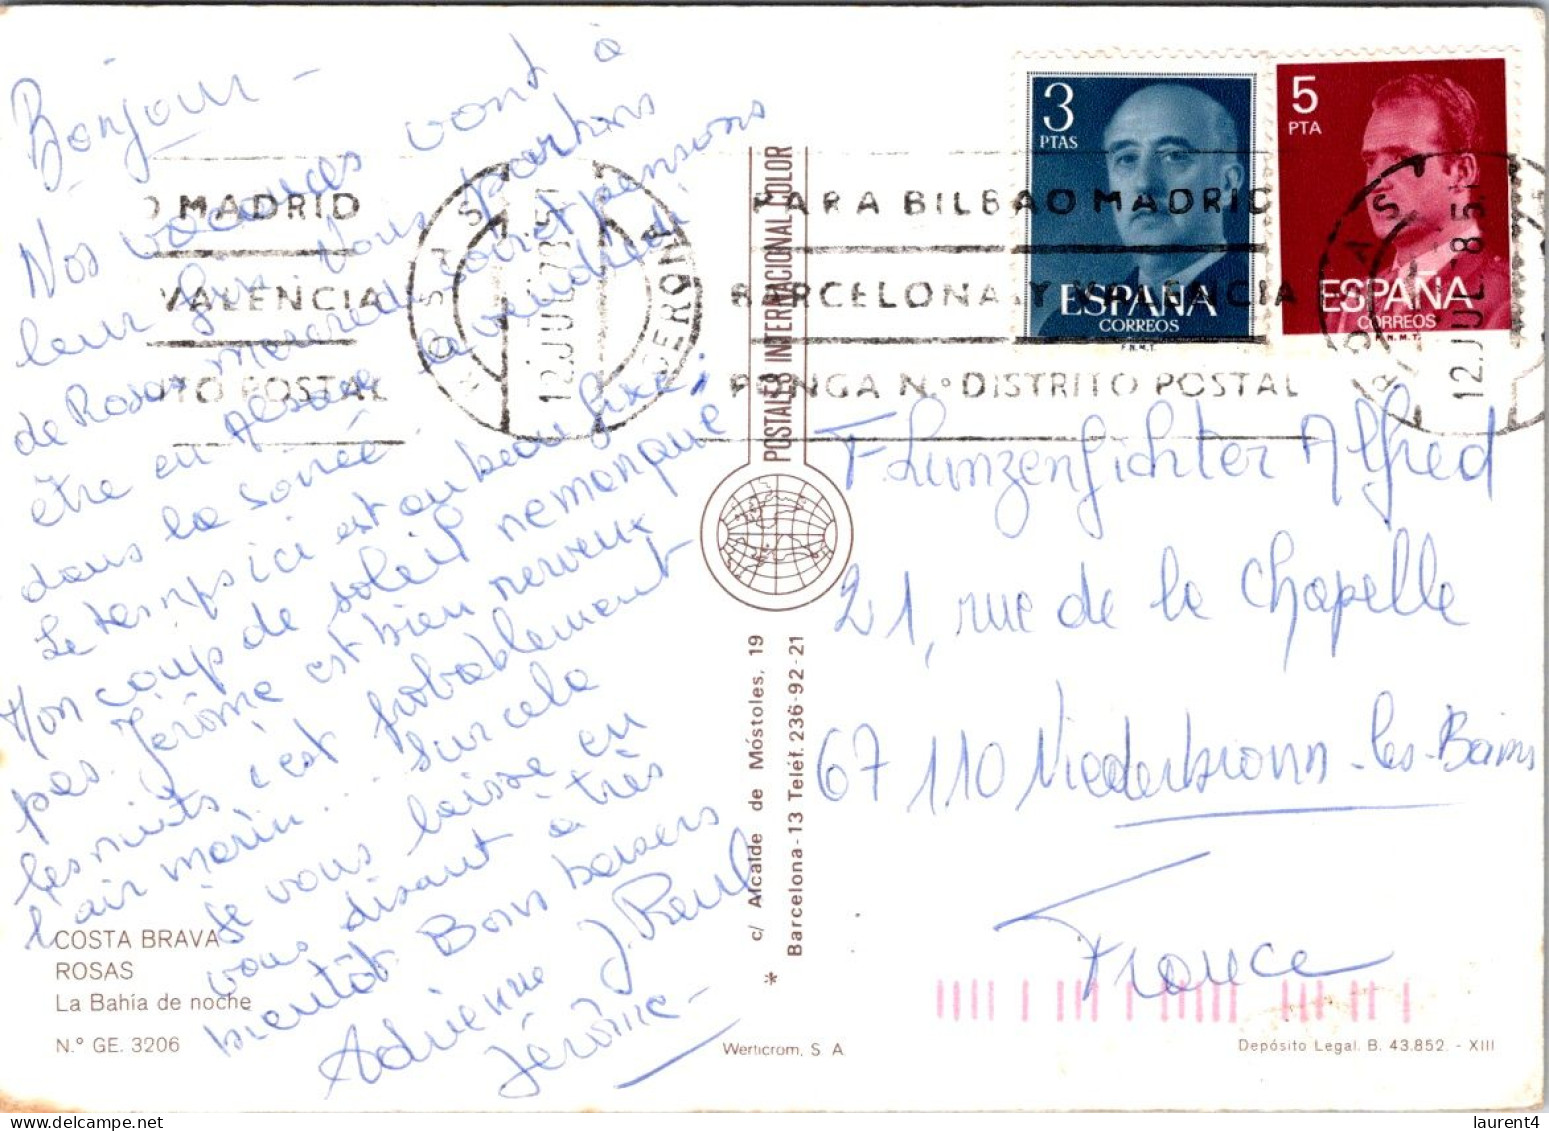 Bonjour -
Nos vacances vont à
leur fin. Nous partons
de Rosas mercredi soir et pensons
être en Alsace le vendredi
dans la soirée.
Le temps ici est au beau fixe;
Mon coup de soleil ne manque
pas. Jérôme est bien nerveux
les nuits c'est probablement
l'air marin... Sur cela
je vous laisse en
vous disant à très
bientôt. Bons baisers
Adrienne J. Paul
Jérôme -
COSTA BRAVA
ROSAS
La Bahía de noche
N.° GE. 3206
MADRID
VALENCIA
POSTAL
ROSAS
12.JUL.78
GERONA
POSTALES INTERNACIONAL COLOR
c/ Alcalde de Móstoles, 19
Barcelona-13 Teléf. 236-92-21
Werticrom, S A
3
PTAS
ESPAÑA
CORREOS
F.N.M.T.
5
PTA
ESPAÑA
CORREOS
F.N.M.T.
PARA BILBAO MADRID
BARCELONA Y VALENCIA
PONGA N.° DISTRITO POSTAL
ROSAS
12.JUL.78
F. Lunzenfichter Alfred
21, rue de la Chapelle
67110 Niederbronn-les-Bains
France
Depósito Legal. B. 43.852. - XIII
laurent4